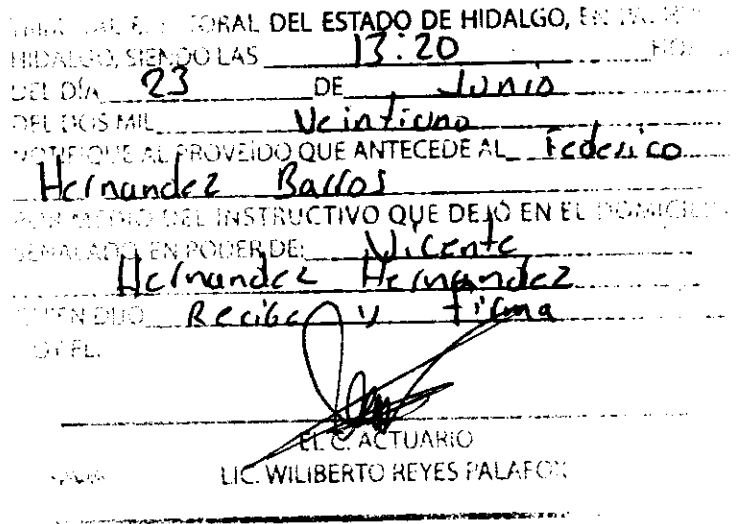 ORAL DEL ESTADO DE HIDALGO, EN
HIDALGO, SIENDO LAS 13:20
DEL DÍA 23 DE Junio
DEL DOS MIL Veintiuno
NOTIFIQUE AL PROVEÍDO QUE ANTECEDE AL Federico
Hernandez Barros
POR MEDIO DEL INSTRUCTIVO QUE DEJÓ EN EL DOMICILIO
SEÑALADO, EN PODER DE: Vicente
Hernandez Hernandez
QUIEN DIJO Recibe y firma
DOY FE.
EL C. ACTUARIO
LIC. WILIBERTO REYES PALAFOX